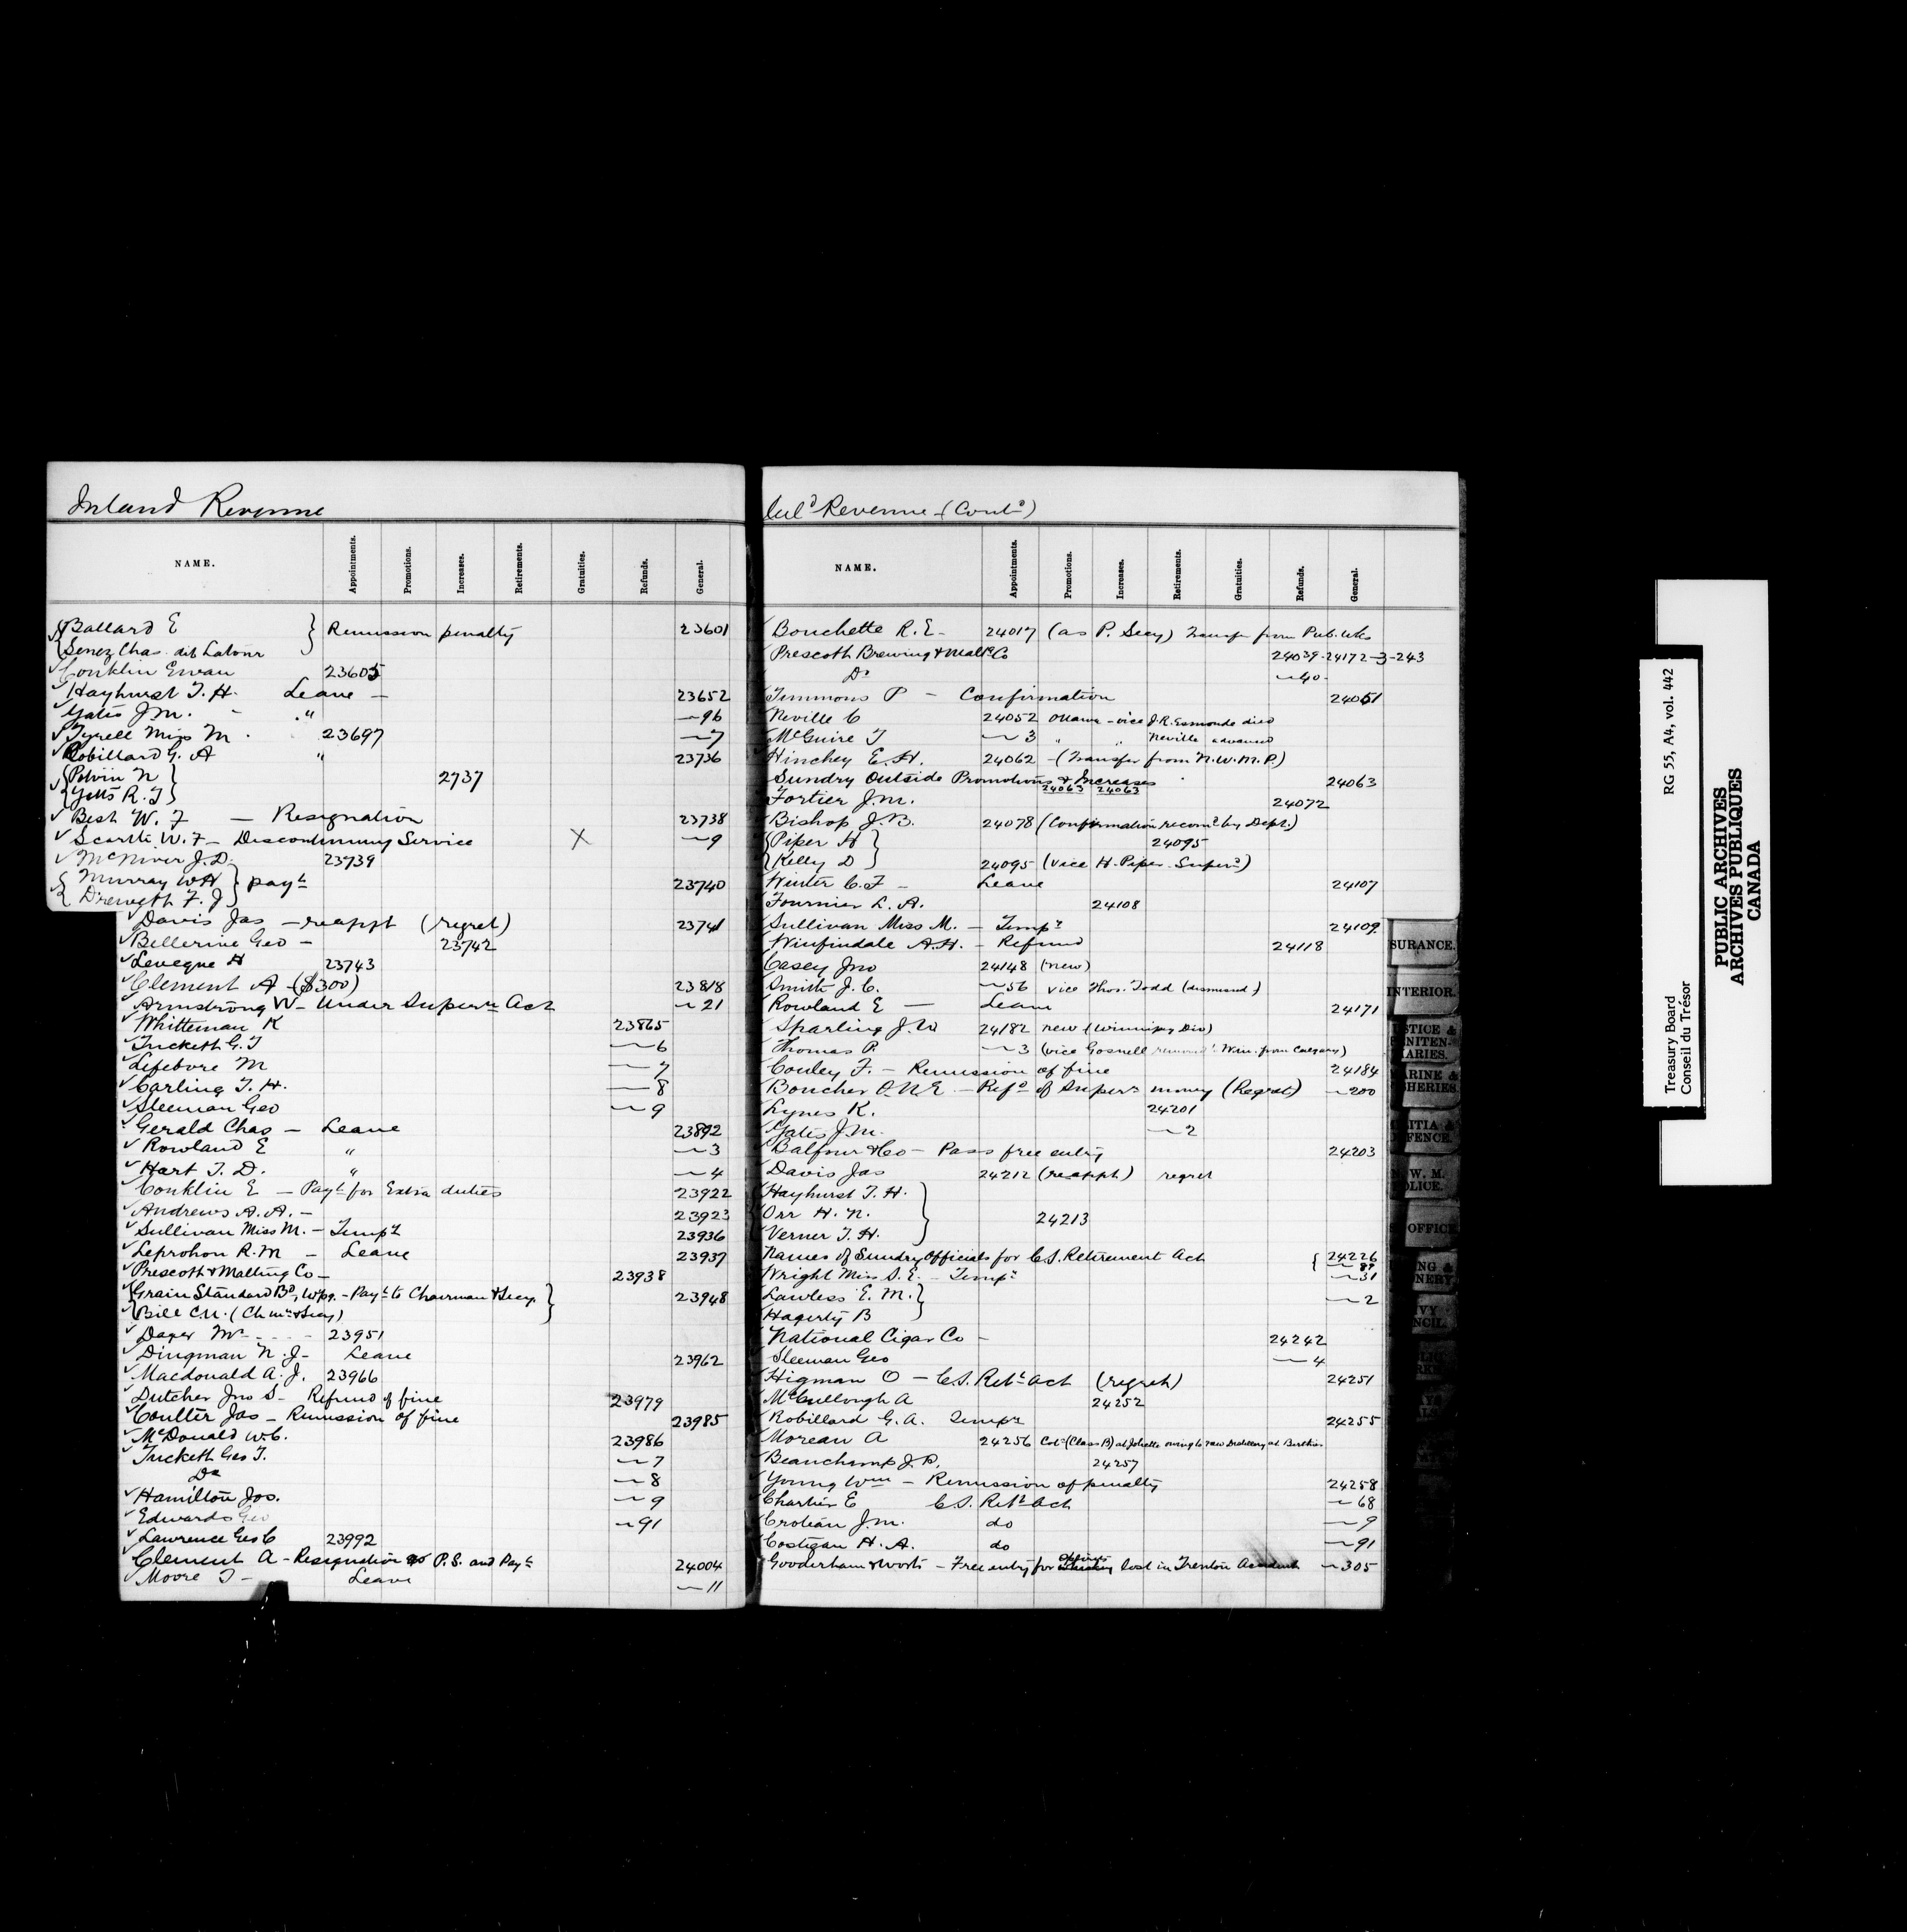 Inland Revenue
NAME. Appointments. Promotions. Increases. Retirements. Gratuities. Refunds. General.
Ballard E } Remission penalty 23601
Senez Chas. dit Latour
Conklin Ewan 23605
Hayhurst T. H. Leave - 23652
Yates J.M. - " 96
Tyrell Miss M. 23697 7
Robillard G. A " 23736
Potvin N } 2737
Yetts R. J }
Best W. F - Resignation 23738
Scarth W. F - Discontinuing Service X 9
McNiver J. D. 23739
Murray W H } payt 23740
F. J }
Davis Jas - reappt (regret) 23741
Bellerive Geo - 23742
Leveque H 23743
Clement A - ($300) 23818
Armstrong W - Under Supern Act 21
Whitteman K 23865
Tuckett G. T 6
Lefebvre M 7
Carling T. H. 8
Sleeman Geo 9
Gerald Chas - Leave 23892
Rowland E " 3
Hart T. D. " 4
Conklin E - Payt for Extra duties 23922
Andrews A. A. - 23923
Sullivan Miss M. - Tempy 23936
Leprohon R. M - Leave 23937
Prescott & Malting Co - 23938
Grain Standard Bd, Wpg. - Payt to Chairman & Secy. } 23948
Bell C.N. (Chmn & Secy)
Dager Mc - - - - 23951
Dingman N. J - Leave 23962
Macdonald A. J. 23966
Dutcher Jno S - Refund of fine 23979
Coulter Jas - Remission of fine 23985
McDonald W. C. 23986
Tuckett Geo T. 7
Do 8
Hamilton Jos. 9
Edwards Geo 91
Lawrence Geo C 23992
Clement A - Resignation as P.S. and Payt 24004
Moore T - Leave 11
Inld Revenue - (Contd)
NAME. Appointments. Promotions. Increases. Retirements. Gratuities. Refunds. General.
Bouchette R. E - 24017 (as P. Secy) Transfer from Pub. Wks
Prescott Brewing & Maltg Co 24039-24172-3-243
Do 40
Timmons P - Confirmation 24051
Neville C 24052 Ottawa - vice J. R. Esmonde died
McGuire T 3 " " Neville advanced
Hinchey E. H. 24062 - (Transfer from N. W. M. P.)
Sundry Outside Promotions & Increases 24063
24063 24063
Fortier J. M. 24072
Bishop J. B. 24078 (Confirmation recomd by Dept.)
Piper H } 24095
Kelly D } 24095 (vice H. Piper - Superd)
Winter C. F - Leave 24107
Fournier L. A. 24108
Sullivan Miss M. - Tempy 24109
Winfindale A.H. - Refund 24118
Casey Jno 24148 (new)
Smith J. C. 56 vice Thos. Todd (dismissed)
Rowland E - Leave 24171
Sparling J. W 24182 new (Winnipeg Div)
Thomas P. 3 (vice Gosnell removd to Win. from Calgary)
Conley F. - Remission of fine 24184
Boucher O. N. E - Refd of Supern money (Regret) 200
Lynes K. 24201
Yates J. M. 2
Balfour & Co - Pass free entry 24203
Davis Jas 24212 (reappt) regret
Hayhurst T. H. }
Orr H. N. } 24213
Verner T. H. }
Names of Sundry Officials for C.S. Retirement Act { 24226
89
Wright Miss S. E. - Tempy 31
Lawless E. M. } 2
Hagerty B }
National Cigar Co - 24242
Sleeman Geo 4
Higman O - C.S. Rett Act (regret) 24251
McCullough A 24252
Robillard G. A. Tempy 24255
Moreau A 24256 Colr (Class B) at Joliette owing to new Distillery at Berthier
Beauchamp J. P. 24257
Young Wm - Remission of penalty 24258
Chartier E C.S. Rett Act 68
Croteau J. M. do 9
Costigan H. A. do 91
Gooderham & Worts - Free entry for Spirits lost in Trenton Accident 305
SURANCE.
INTERIOR.
STICE & PENITEN- IARIES.
ARINE & SHERIES
LITIA & FENCE.
W. M. OLICE.
OFFICE
Treasury Board RG 55, A4, vol. 442
Conseil du Trésor
PUBLIC ARCHIVES
ARCHIVES PUBLIQUES
CANADA